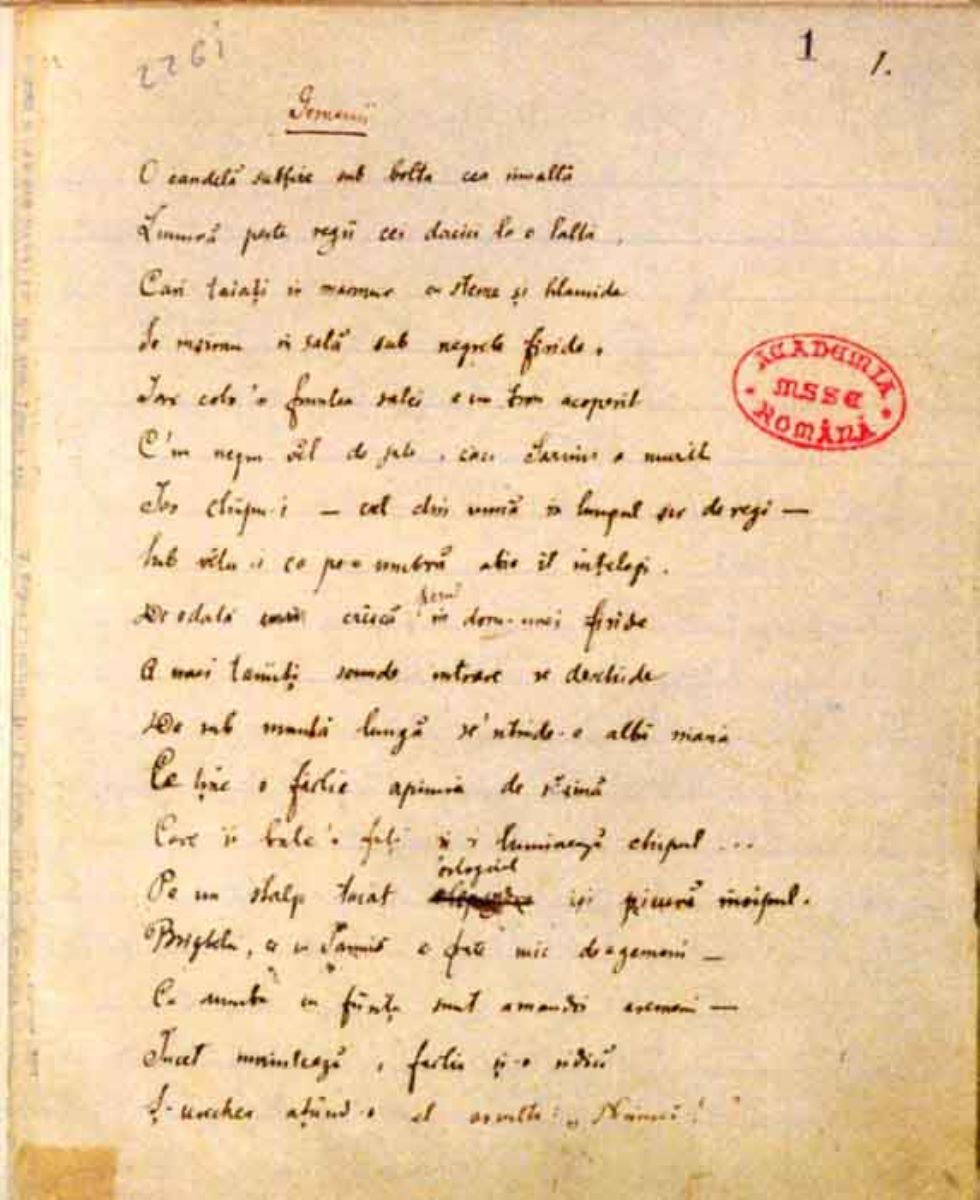 2261
1
1.
Gemenii
O candelă subțire sub bolta cea inaltă
Lumină peste regii cei dacici la o laltă,
Cari tăiați in marmur cu steme și hlamide
Se inșirau in sală sub negrele firide.
Iar colo 'n fruntea salei e un tron acoperit
C'un negru văl de jale, căci Sarmis a murit
Iar chipu-i — cel din urmă in lungul șir de regi —
Sub vălu-i ca pe-o umbră abia îl înțelegi.
De odată crișcă in dosu-unei firide
A unei tainiți scunde intrare se deschide
De sub manta lungă se 'ntinde-o albă mană
Ce ține o făclie aprinsă de rășină
Care îi bate 'n față și-i luminează chipul ...
orlogiul
Pe un stalp tăcat își picură nisipul.
Brigbelu, ce cu Sarmis e frate mic de-gemeni —
Ca umbra cu ființa sunt amandoi asemeni —
Incet inaintează, făclia și-o ridică
Ș-urechea ațiind-o el ascultă: „Nimică!"
ACADEMIA
MSSE
ROMÂNĂ